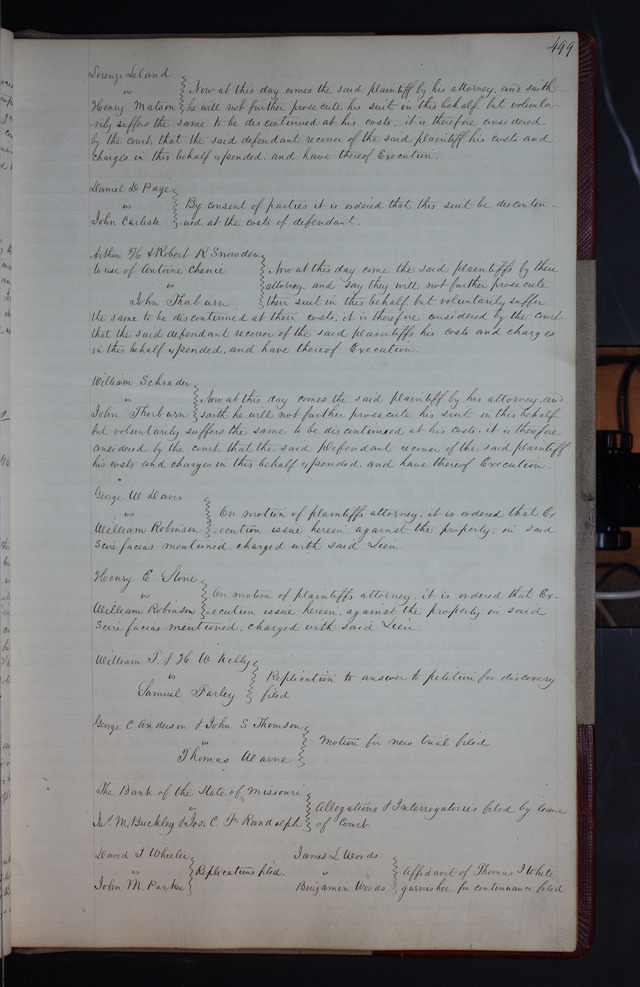 499
Lorenzo Leland
vs
Henry Matson
Now at this day comes the said plaintiff by his attorney, and saith
he will not further prosecute his suit in this behalf but volunta-
rily suffers the same to be discontinued at his costs. it is therefore considered
by the court, that the said defendant recover of the said plaintiff his costs and
charges in this behalf expended, and have thereof Execution.
Daniel D Page
vs
John Carlisle
By consent of parties it is ordered that this suit be discontin-
ued at the costs of defendant.
Arthur H & Robert R Snowden
to use of Antoine Chenie
vs
John Thorburn
Now at this day come the said plaintiffs by their
attorney, and say they will not further prosecute
their suit in this behalf but voluntarily suffer
the same to be discontinued at their costs, it is therefore considered by the court
that the said defendant recover of the said plaintiffs his costs and charges
in this behalf expended, and have thereof Execution.
William Schrader
vs
John Thorburn
Now at this day comes the said plaintiff by his attorney, and
saith he will not further prosecute his suit in this behalf
but voluntarily suffers the same to be discontinued at his costs. it is therefore
considered by the court, that the said Defendant recover of the said plaintiff
his costs and charges in this behalf expended. and have thereof Execution.
George W Davis
vs
William Robinson
On motion of plaintiffs attorney, it is ordered that Ex-
ecution issue herein, against the property, in said
Scire facias mentioned, charged with said Lien.
Henry E Stone
vs
William Robinson
On motion of plaintiffs attorney, it is ordered that Ex-
ecution issue herein, against the property in said
Scire facias mentioned, charged with said Lien.
William T. & H. W Kelly
vs
Samuel Farley
Replication to answer to petition for discovery
filed
George C Anderson & John S Thomson
vs
Thomas Warne
Motion for new trial filed
The Bank of the State of Missouri
vs
Jno M. Buckley & Jos. C. F. Randolph
Allegations & Interrogatories filed by leave
of Court.
David T Wheeler
vs
John M. Parker
Replications filed.
James L Woods
vs
Benjamin Woods
Affidavit of Thomas J White
garnishee for continuance filed